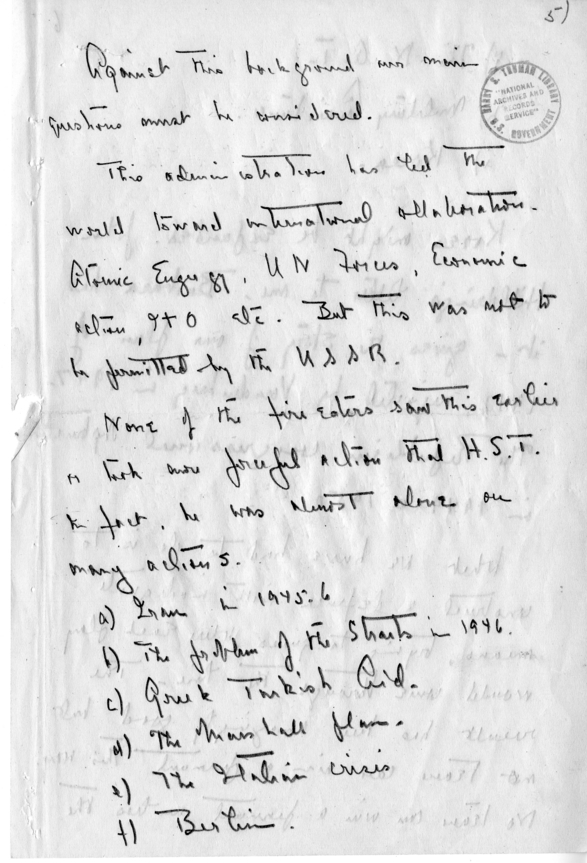 5)
HARRY S. TRUMAN LIBRARY
"NATIONAL
ARCHIVES AND
RECORDS
SERVICE"
U.S. GOVERNMENT
Against this background our main
questions must be considered.
This administration has led the
world toward international collaboration.
Atomic Energy, UN Forces, Economic
action, ITO etc. But this was not to
be permitted by the USSR.
None of the fire eaters saw this earlier
or took more forceful action that H.S.T.
In fact, he was almost alone on
many actions.
a) Iran in 1945-6
b) The problem of the Straits in 1946.
c) Greek Turkish Aid.
d) The Marshall plan.
e) The Italian crisis
f) Berlin.